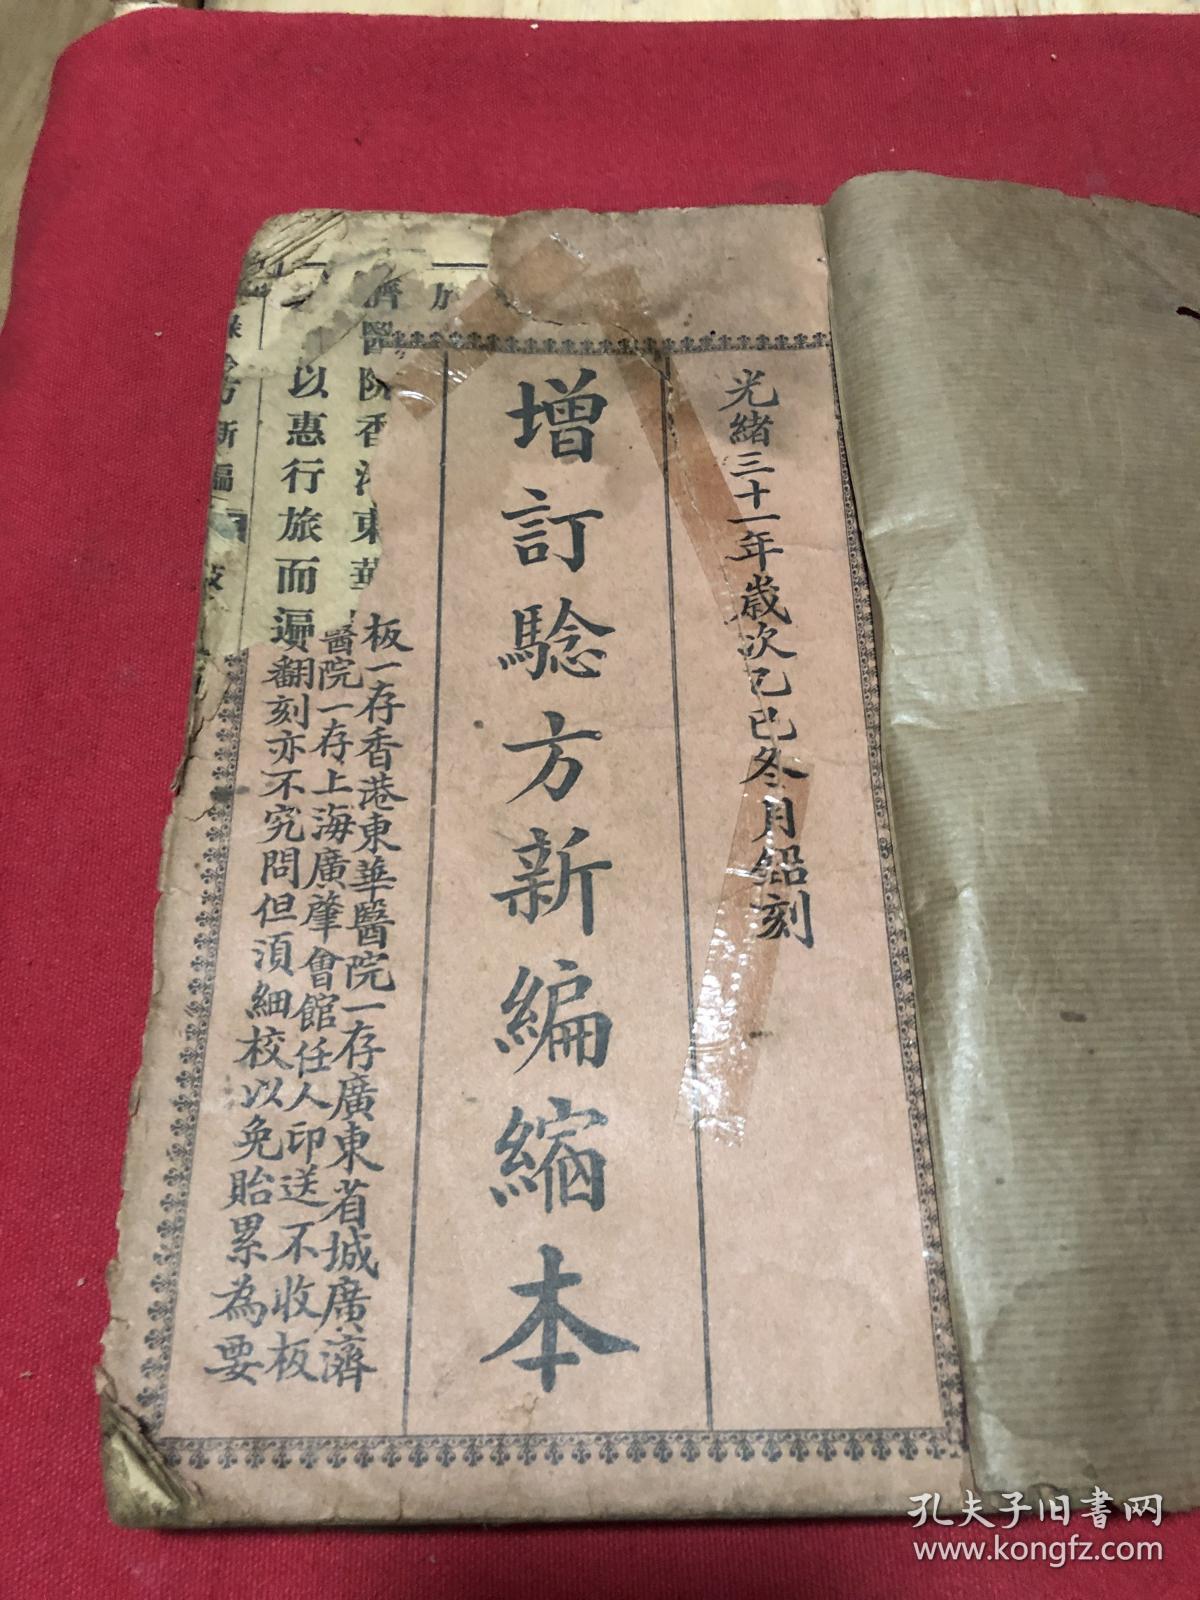 光緒三十一年歲次乙巳冬月鉛刻
增訂騐方新編縮本
板一存香港東華醫院一存廣東省城廣濟
醫院一存上海廣肇會館任人印送不收板
翻刻亦不究問但須細校以免貽累為要
濟醫院香港東華
以惠行旅而遍
新編
孔夫子旧书网
www.kongfz.com